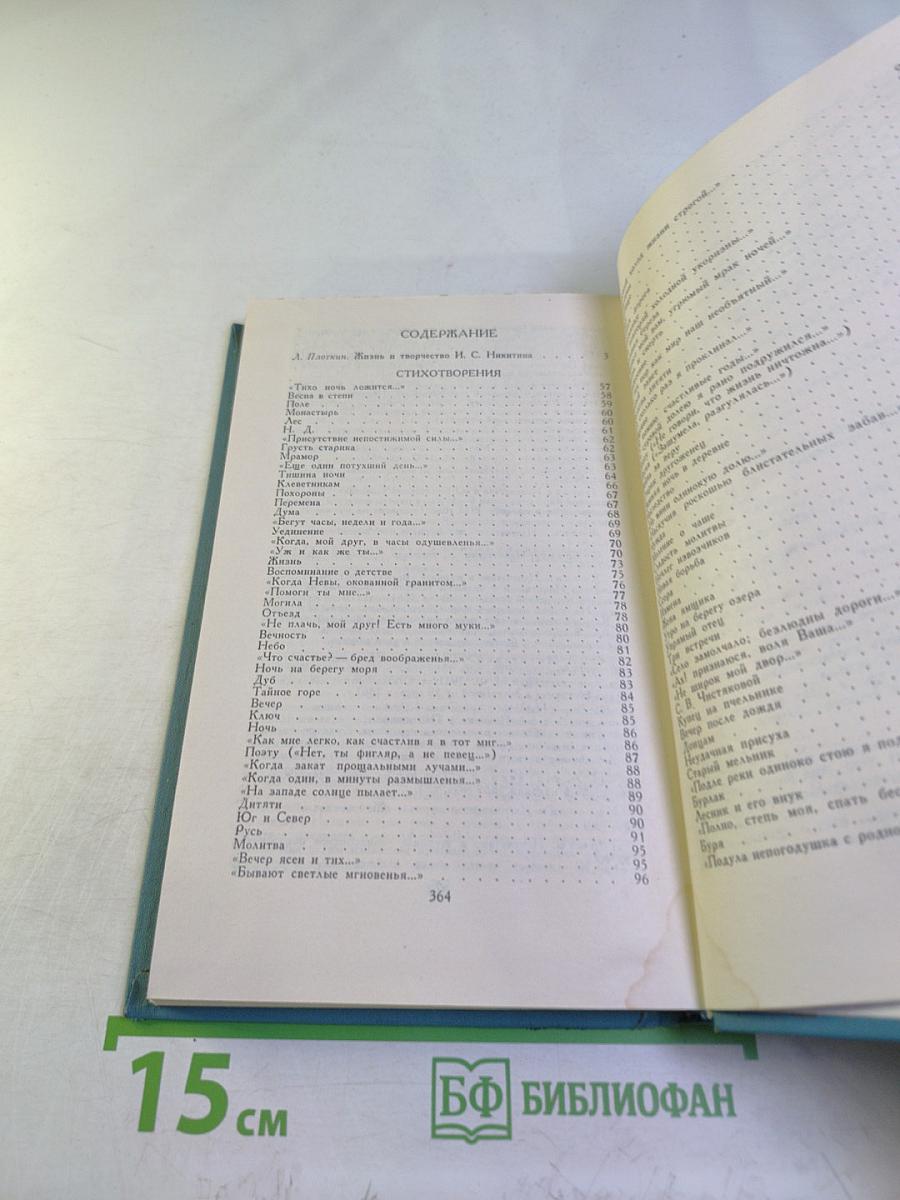 СОДЕРЖАНИЕ
Л. Плоткин. Жизнь и творчество И. С. Никитина . . . . 3
СТИХОТВОРЕНИЯ
«Тихо ночь ложится...» 57
Весна в степи 58
Поле 59
Монастырь 60
Лес 60
Н. Д. 61
«Присутствие непостижимой силы...» 62
Грусть старика 62
Мрамор 63
«Еще один потухший день...» 63
Тишина ночи 64
Клеветникам 66
Похороны 67
Перемена 67
Дума 68
«Бегут часы, недели и года...» 69
Уединение 69
«Когда, мой друг, в часы одушевленья...» 70
«Уж и как же ты...» 70
Жизнь 73
Воспоминание о детстве 75
«Когда Невы, окованной гранитом...» 76
«Помоги ты мне...» 77
Могила 78
Отъезд 78
«Не плачь, мой друг! Есть много муки...» 80
Вечность 80
Небо 81
«Что счастье? — бред воображенья...» 82
Ночь на берегу моря 83
Дуб 83
Тайное горе 84
Вечер 85
Ключ 85
Ночь 86
«Как мне легко, как счастлив я в тот миг...» 86
Поэту («Нет, ты фигляр, а не певец...») 87
«Когда закат прощальными лучами...» 88
«Когда один, в минуты размышленья...» 88
«На западе солнце пылает...» 89
Дитяти 90
Юг и Север 90
Русь 91
Молитва 95
«Вечер ясен и тих...» 95
«Бывают светлые мгновенья...» 96
364
холод жизни строгой...»
дорога
холодной укоризны...»
береза
вам, угрюмый мрак ночей...»
смерть
как мир наш необъятный...»
дитяти
раз я проклинал...»
счастливые годы...»
долею я рано подружился...»
(«Не говори, что жизнь ничтожна...»)
(«Зашумела, разгулялась...»)
за веру
другоженец
ночь в деревне
вини одинокую долю...»
роскошью блистательных забав...»
о чаше
молитвы
извозчиков
борьба
Ссора
Измена
Жена ямщика
Утро на берегу озера
Упрямый отец
Три встречи
«Село замолчало; безлюдны дороги...»
«Ах! признаюсь, воля Ваша...»
«Не широк мой двор...»
С. В. Чистяковой
Купец на пчельнике
Вечер после дождя
Донцам
Неудачная присуха
Старый мельник
«Подле реки одиноко стою я под
Бурлак
Лесник и его внук
«Полно, степь моя, спать бес
Буря
«Подула непогодушка с родно
15 см
БФ БИБЛИОФАН